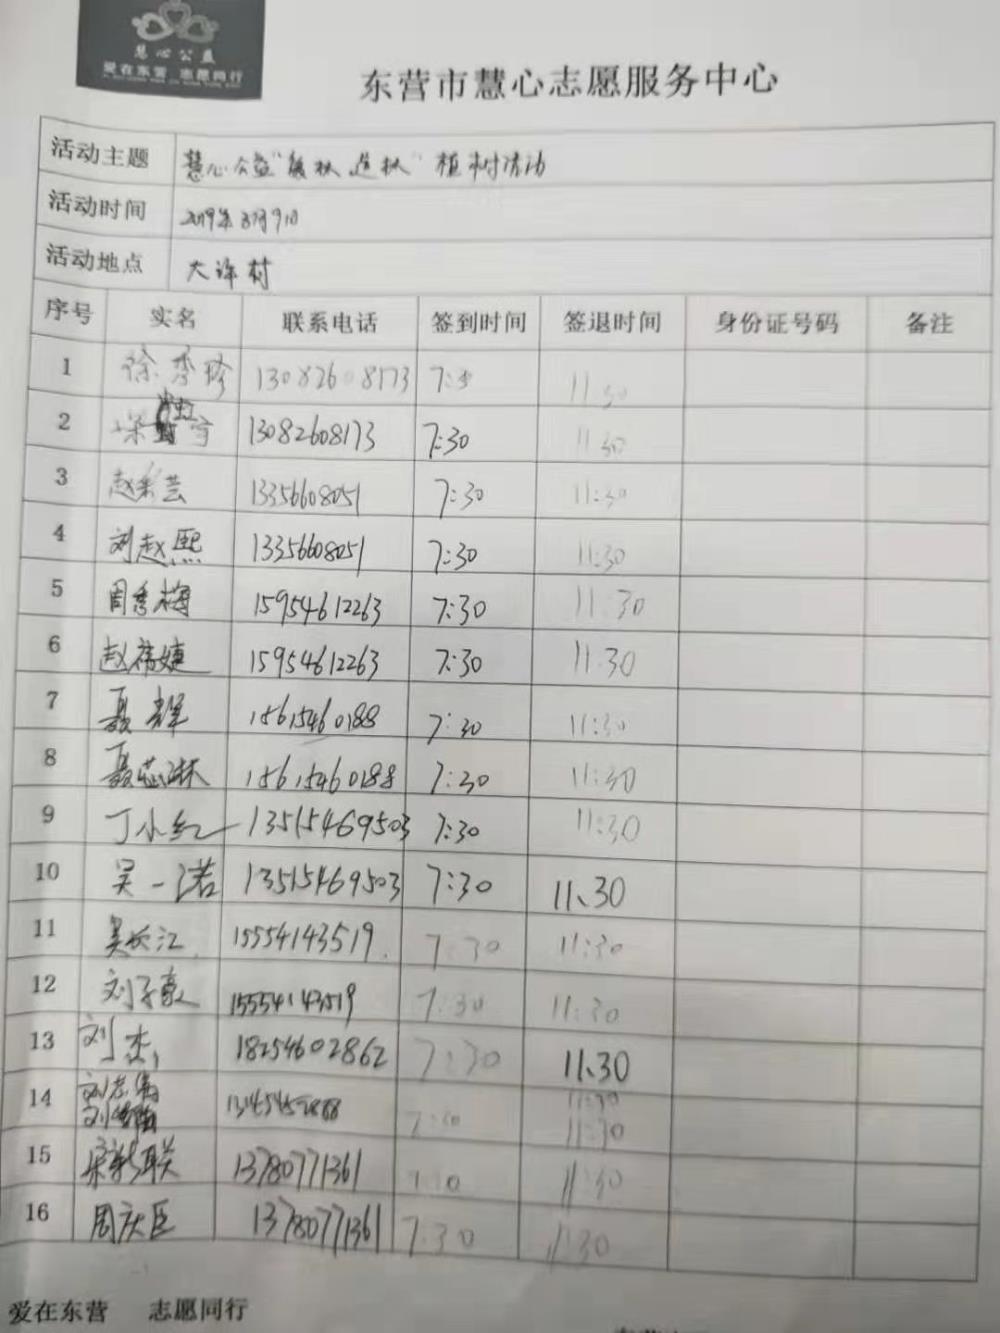 慧心公益
爱在东营 志愿同行
东营市慧心志愿服务中心
活动主题 慧心公益" 造林"植树活动
活动时间 2019年3月9日
活动地点 大许村
序号 实名 联系电话 签到时间 签退时间 身份证号码 备注
1 徐秀珍 13082608173 11:30
2 13082608173 7:30 11:30
3 赵彩芸 13356608051 7:30 11:30
4 刘赵熙 13356608051 7:30 11:30
5 周秀梅 15954612263 7:30 11:30
6 15954612263 7:30 11:30
7 聂辉 15615460188 7:30 11:30
8 聂芯琳 15615460188 7:30 11:30
9 丁小红 13515469503 7:30 11:30
10 吴一诺 13515469503 7:30 11.30
11 吴长江 15554143519. 7:30 11:30
12 刘子豪 15554143519 7:30 11:30
13 刘杰 18254602862 7:30 11.30
14 11:30
11:30
15 宋新联 13780771361 11:30
16 周庆臣 13780771361 7:30 11:30
爱在东营 志愿同行